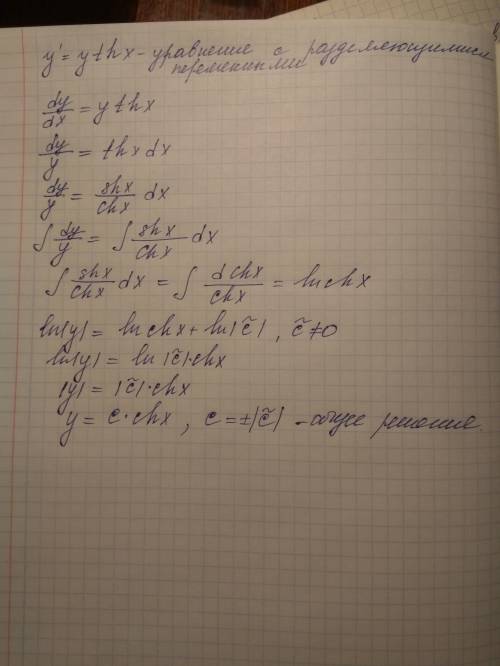 y' = y th x - уравнение с разделяющимися
переменными
dy/dx = y th x
dy/y = th x dx
dy/y = sh x/ch x dx
∫ dy/y = ∫ sh x/ch x dx
∫ sh x/ch x dx = ∫ d ch x/ch x = ln ch x
ln|y| = ln ch x + ln|c̃|, c̃ ≠ 0
ln|y| = ln |c̃|·ch x
|y| = |c̃|·ch x
y = c·ch x, c = ±|c̃| - общее решение.